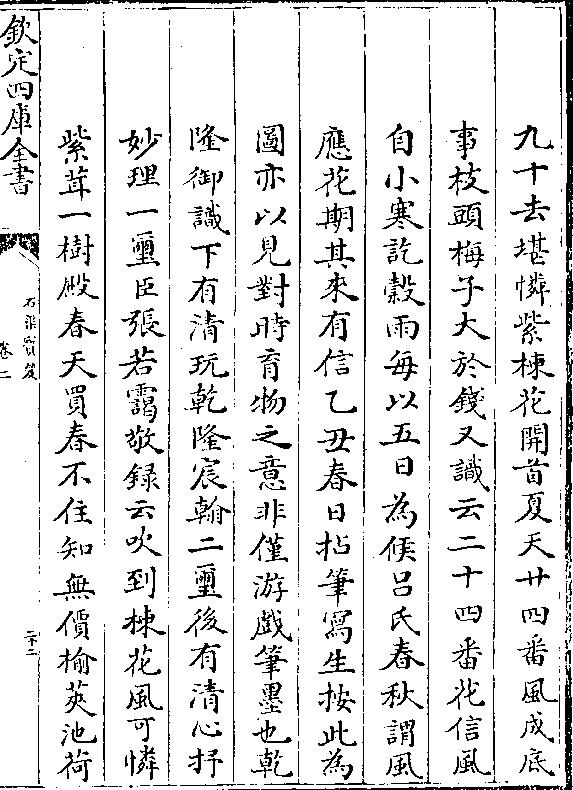 九十去堪憐紫楝花開首夏天廿四番風成底
事枝頭梅子大於錢又識云二十四番花信風
自小寒訖穀雨每以五日為候吕氏春秋謂風
應花期其來有信乙丑春日拈筆寫生按此為
圖亦以見對時育物之意非僅游戲筆墨也乾
隆御識下有清玩乾隆宸翰二璽後有清心抒
妙理一璽臣張若靄敬録云吹到楝花風可憐
紫茸一樹殿春天買春不住知無價榆莢池荷
欽定四庫全書
石渠寶笈
卷二